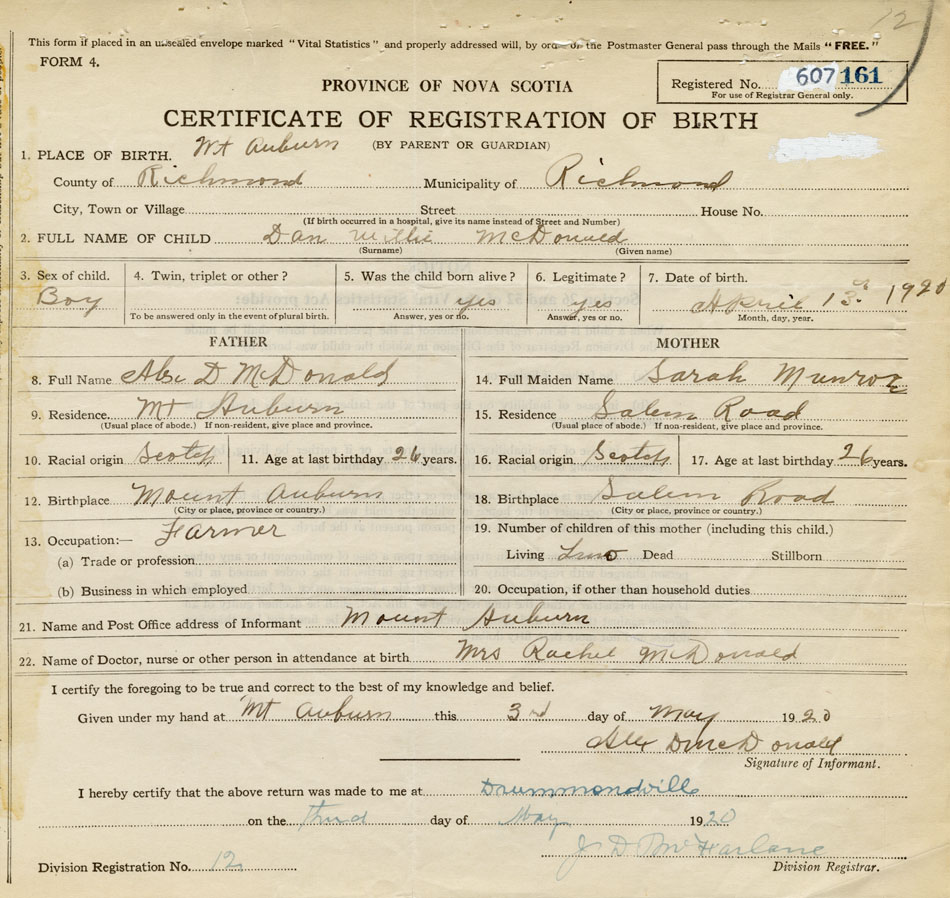 12
This form if placed in an unsealed envelope marked "Vital Statistics" and properly addressed will, by order of the Postmaster General pass through the Mails "FREE."
FORM 4.
Registered No. 607 161
For use of Registrar General only.
PROVINCE OF NOVA SCOTIA
CERTIFICATE OF REGISTRATION OF BIRTH
(BY PARENT OR GUARDIAN)
1. PLACE OF BIRTH. Mt Auburn
County of Richmond Municipality of Richmond
City, Town or Village Street House No.
(If birth occurred in a hospital, give its name instead of Street and Number)
2. FULL NAME OF CHILD Dan Willie McDonald
(Surname) (Given name)
3. Sex of child. Boy
4. Twin, triplet or other?
To be answered only in the event of plural birth.
5. Was the child born alive? yes
Answer, yes or no.
6. Legitimate? yes
Answer, yes or no.
7. Date of birth. April 13 1920
Month, day, year.
FATHER
8. Full Name Alex D McDonald
9. Residence. Mt Auburn
(Usual place of abode.) If non-resident, give place and province.
10. Racial origin Scotch 11. Age at last birthday 26 years.
12. Birthplace Mount Auburn
(City or place, province or country.)
13. Occupation:— Farmer
(a) Trade or profession
(b) Business in which employed
MOTHER
14. Full Maiden Name Sarah Munroe
15. Residence Salem Road
(Usual place of abode.) If non-resident, give place and province.
16. Racial origin Scotch 17. Age at last birthday 26 years.
18. Birthplace Salem Road
(City or place, province or country.)
19. Number of children of this mother (including this child.)
Living Two Dead Stillborn
20. Occupation, if other than household duties
21. Name and Post Office address of Informant Mount Auburn
22. Name of Doctor, nurse or other person in attendance at birth Mrs Rachel McDonald
I certify the foregoing to be true and correct to the best of my knowledge and belief.
Given under my hand at Mt Auburn this 3rd day of May 1920
Alex D McDonald
Signature of Informant.
I hereby certify that the above return was made to me at Drummondville
on the third day of May 1920
J D McFarlane
Division Registration No. 12 Division Registrar.